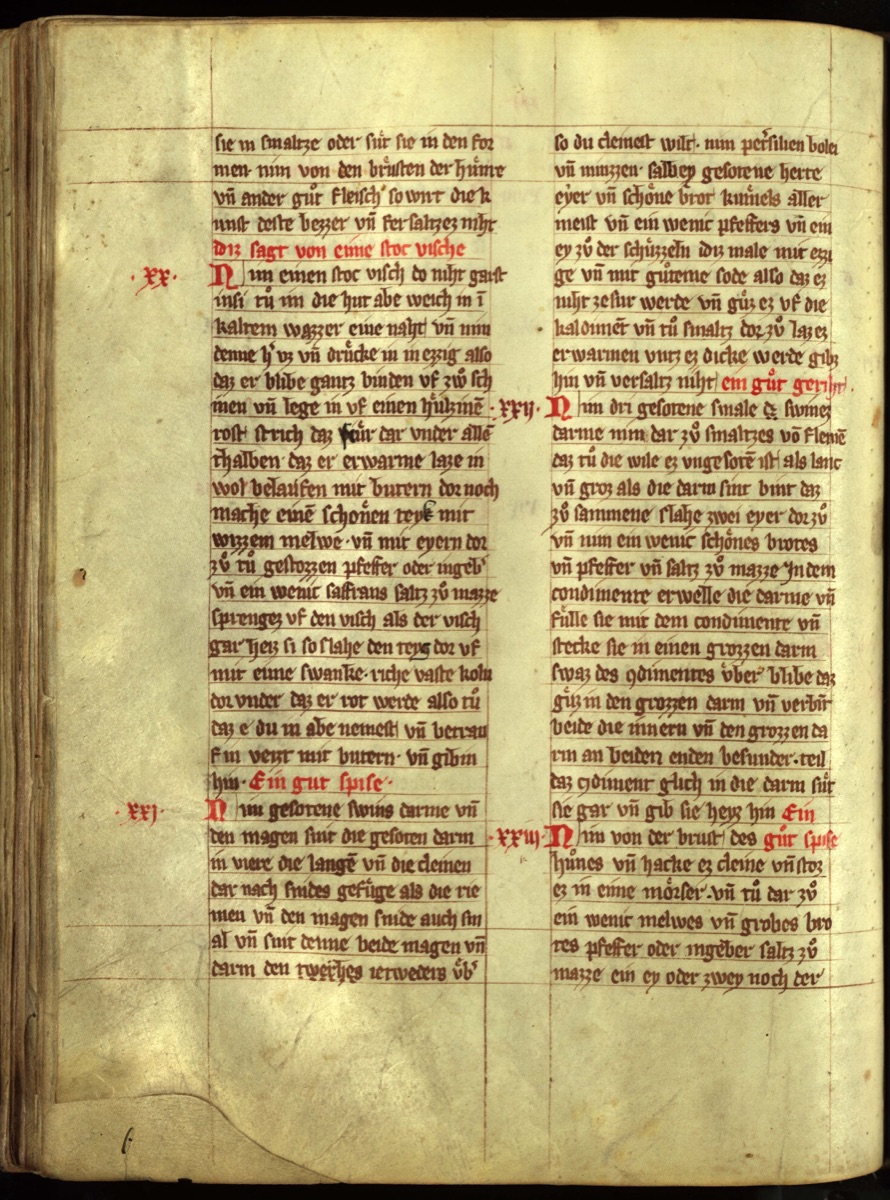 sie in smaltze oder süt sie in den for
men· nim von den brüsten der hünre
vñ ander gůt fleisch so wirt die k
unst deste bezzer vñ fersaltzez niht
diz sagt von eime stoc vische
·xx· Nim einen stoc visch do niht garst
insi tů im die hut abe weich in ī
kaltem wazzer eine naht vñ nim
denne in vz vñ drücke in in ezzig also
daz er blibe gantz binden vf zwů sch
inen vñ lege in vf einen hültzinē
rost strich daz fuͤr dar vnder allē
thalben daz er erwarme laze in
wol belaufen mit butern dor noch
mache einē schönen teyk mit
wizzem melwe· vñ mit eyern dor
zů tů gestozzen pfeffer oder ingeb'
vñ ein wenic saffrans saltz zů mazze
sprengez vf den visch als der visch
gar heiz si so slahe den teyg dor vf
mit eime swanke· riche vaste koln
dor vnder daz er rot werde also tů
daz e du in abe nemest vñ betrau
f in veizt mit butern· vñ gib in
hin· Ein gut spise·
·xxi· Nim gesotene swins darme vñ
den magen snit die gesoten darm
in viere die langē vñ die cleinen
dar nach snides gefüge als die rie
men vñ den magen snide auch sm
al vñ snit denne beide magen vñ
darm den twerhes ietweders ůb'
so du cleinest wilt· nim pet'silien bolei
vñ minzzen· salbey gesotene herte
eyer vñ schöne brot kümels aller
meist vñ ein wenic pfeffers vñ ein
ey zů der schüzzeln diz male mit ezzi
ge vñ mit gůteme sode also daz ez
niht ze sur werde vñ güz ez vf die
kaldimēt vñ tů smaltz dor zů laz ez
erwarmen vntz ez dicke werde gibz
hin vñ versaltz niht ein gůt geriht·
·xxij· Nim dri gesotene smale dez swinez
darme nim dar zů smaltzes vō flemē
daz tů die wile ez vngesotē ist als lanc
vñ groz als die darm sint bint daz
zů sammene slahe zwei eyer dor zů
vñ nim ein wenic schönes brotes
vñ pfeffer vñ saltz zů mazze In dem
condimente erwelle die darme vñ
fülle sie mit dem condimente vñ
stecke sie in einen grozzen darm
swaz des ꝯdimentes über blibe daz
güz in den grozzen darm vñ verbīt
beide die innern vñ den grozzen da
rm an beiden enden besunder· teil
daz ꝯdiment glich in die darm süt
sie gar vñ gib sie heyz hin Ein
·xxiij· Nim von der brust des gůt spise
hůnes vñ hacke ez cleine vñ stoz
ez in eime mörser· vñ tů dar zů
ein wenic melwes vñ grobes bro
tes pfeffer oder ingeber saltz zů
mazze ein ey oder zwey noch der